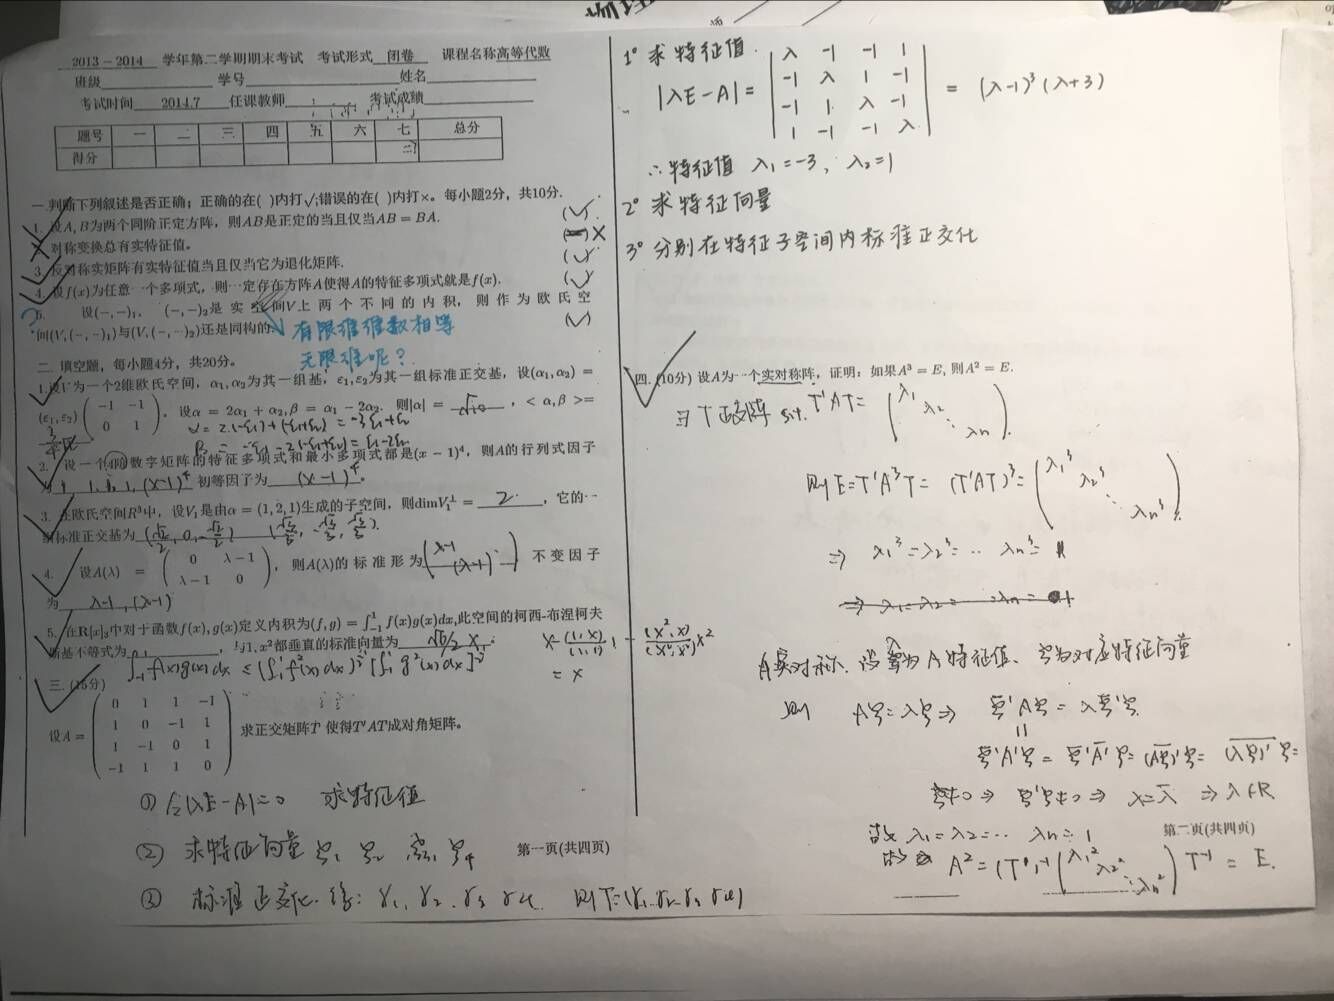 物理
2013－2014 学年第二学期期末考试 考试形式 闭卷 课程名称高等代数
班级 学号 姓名
考试时间 2014.7 任课教师 考试成绩
题号 一 二 三 四 五 六 七 总分
得分
一.判断下列叙述是否正确；正确的在( )内打√;错误的在( )内打×。每小题2分，共10分.
1. 设A, B为两个同阶正定方阵，则AB是正定的当且仅当AB = BA. (√)
对称变换总有实特征值。 ×
3. 反对称实矩阵有实特征值当且仅当它为退化矩阵. (√)
4. 设f(x)为任意一个多项式，则一定存在方阵A使得A的特征多项式就是f(x). (√)
5. 设(−,−)₁, (−,−)₂是实空间V上两个不同的内积，则作为欧氏空
间(V,(−,−)₁)与(V,(−,−)₂)还是同构的. (√)
有限维维数相等
无限维呢？
二. 填空题，每小题4分，共20分。
1.设V为一个2维欧氏空间，α₁,α₂为其一组基，ε₁,ε₂为其一组标准正交基，设(α₁,α₂) =
(ε₁,ε₂) ( −1 −1 ; 0 1 )，设α = 2α₁ + α₂, β = α₁ − 2α₂. 则|α| = √10 ，< α,β >=
2. 设一个4阶数字矩阵的特征多项式和最小多项式都是(x − 1)⁴，则A的行列式因子
为 1, 1, 1, (x-1)⁴ 初等因子为 (x-1)⁴。
3. 在欧氏空间R³中，设V₁是由α = (1,2,1)生成的子空间，则dimV₁^⊥ = 2 ，它的一
组标准正交基为
4. 设A(λ) = ( 0 λ−1 ; λ−1 0 )，则A(λ)的标准形为 ( λ-1 (λ-1) ) 不变因子
为 λ-1, (λ-1)
5. 在R[x]₃中对于函数f(x), g(x)定义内积为(f,g) = ∫₋₁¹ f(x)g(x)dx,此空间的柯西-布涅柯夫
斯基不等式为 ，与1, x²都垂直的标准向量为 √6/2 x.
∫₋₁¹ f(x)g(x)dx ≤ [∫₋₁¹ f²(x)dx]^½ [∫₋₁¹ g²(x)dx]^½
x - (1,x)/(1,1) · 1 - (x²,x)/(x²,x²) x²
= x
三. (15分)
设A = ( 0 1 1 −1 ; 1 0 −1 1 ; 1 −1 0 1 ; −1 1 1 0 ) 求正交矩阵T 使得T′AT成对角矩阵。
① 令|λE-A|=0 求特征值
② 求特征向量 ξ₁ ξ₂ ξ₃ ξ₄
③ 标准正交化 得: γ₁, γ₂, γ₃ γ₄. 则T=(γ₁ γ₂ γ₃ γ₄)
第一页(共四页)
1° 求特征值.
|λE-A| = | λ -1 -1 1 ; -1 λ 1 -1 ; -1 1 λ -1 ; 1 -1 -1 λ | = (λ-1)³(λ+3)
∴ 特征值 λ₁=-3, λ₂=1
2° 求特征向量
3° 分别在特征子空间内标准正交化
四. (10分) 设A为一个实对称阵，证明：如果A³ = E, 则A² = E.
∃ T 正交阵 s.t. T'AT= ( λ₁ λ₂ ⋱ λn ).
则 E=T'A³T= (T'AT)³= ( λ₁³ λ₂³ ⋱ λn³ ).
⇒ λ₁³=λ₂³=⋯ λn³= 1
A实对称. 设λ为A特征值、ξ为对应特征向量
则 Aξ=λξ ⇒ ξ̄'Aξ = λξ̄'ξ.
ξ̄'A'ξ = ξ̄'Ā'ξ = (Aξ)̄'ξ = (λξ)̄'ξ =
ξ≠0 ⇒ ξ̄'ξ≠0 ⇒ λ=λ̄ ⇒ λ∈R
故 λ₁=λ₂=⋯ λn=1
故 A²=(T')⁻¹ ( λ₁² λ₂² ⋱ λn² ) T⁻¹ = E.
第二页(共四页)